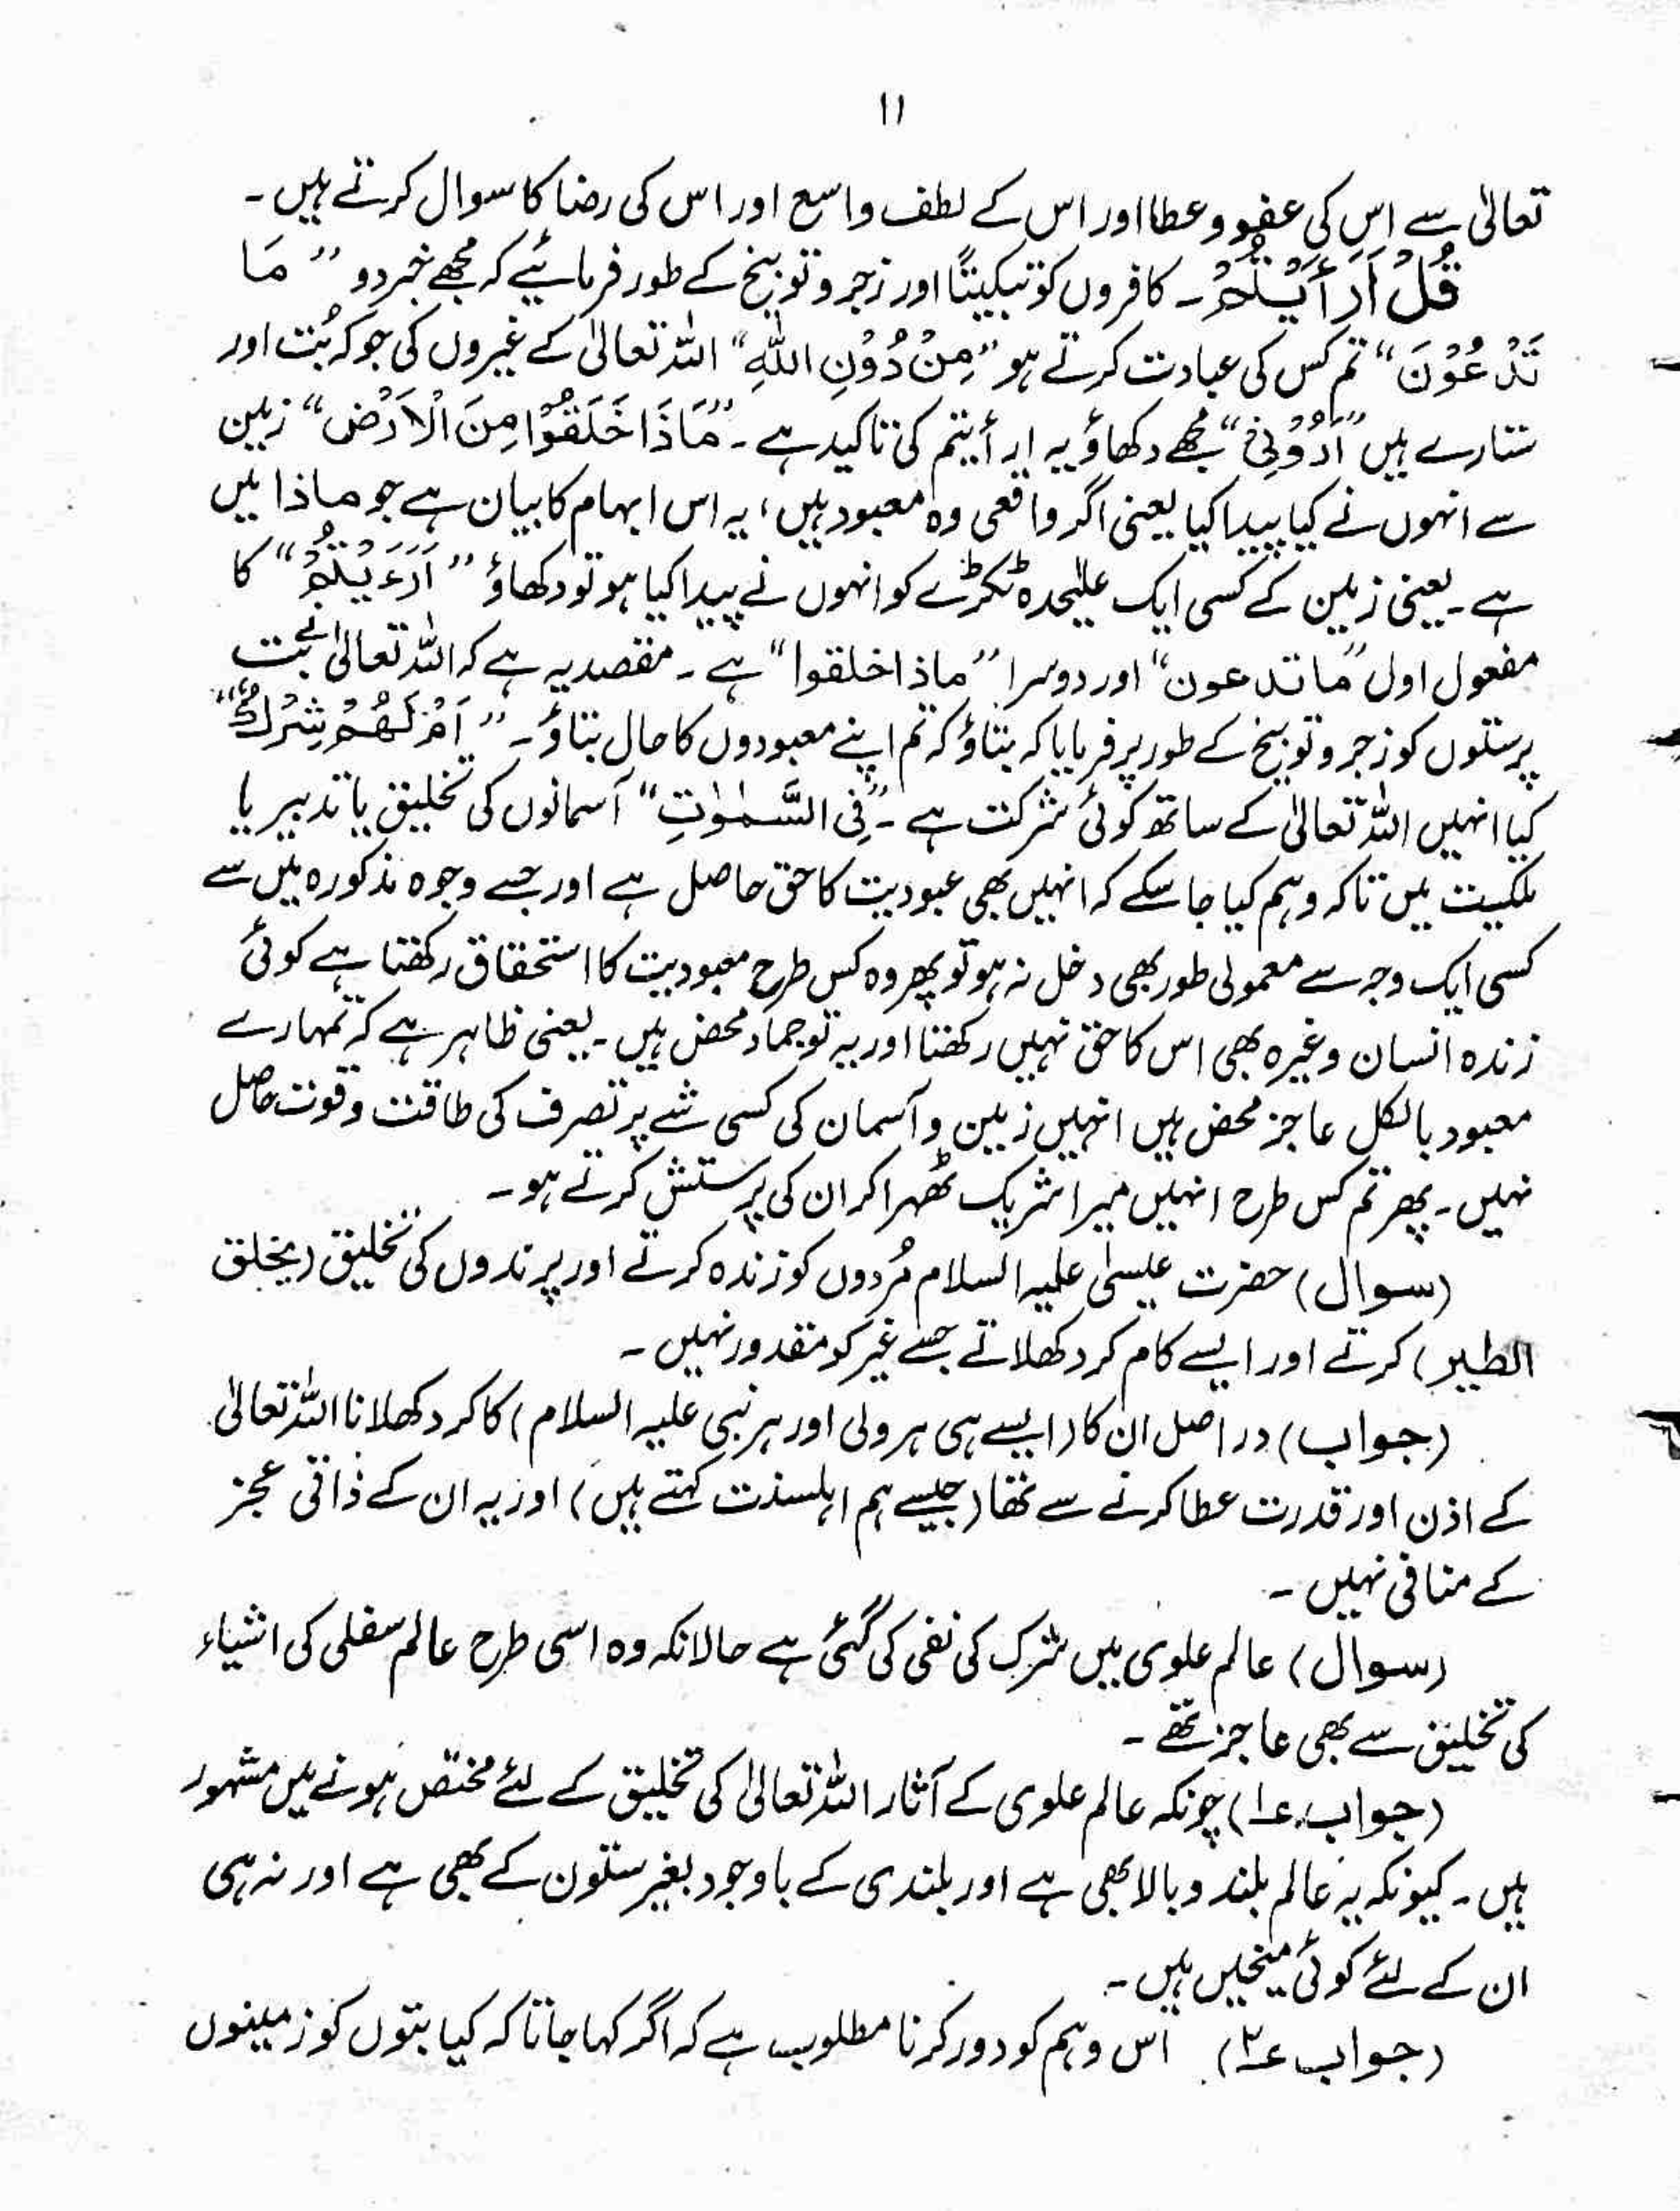 ۱۱
تعالیٰ سے اس کی عفو و عطا اور اس کے لطف واسع اور اس کی رضا کا سوال کرتے ہیں ۔
قُلْ اَرَأَیْتُمْ ۔ کافروں کو تبکیتًا اور زجر و توبیخ کے طور فرمائیے کہ مجھے خبر دو ” مَا
تَدْعُوْنَ “ تم کس کی عبادت کرتے ہو ” مِنْ دُوْنِ اللّٰهِ “ اللہ تعالیٰ کے غیروں کی جو کہ بُت اور
ستارے ہیں ” اَرُوْنِیْ “ مجھے دکھاؤ یہ ارأیتم کی تاکید ہے ۔ ” مَاذَا خَلَقُوْا مِنَ الْاَرْضِ “ زمین
سے انہوں نے کیا پیدا کیا یعنی اگر واقعی وہ معبود ہیں ، یہ اس ابہام کا بیان ہے جو ماذا میں
ہے ۔ یعنی زمین کے کسی ایک علیٰحدہ ٹکڑے کو انہوں نے پیدا کیا ہو تو دکھاؤ ” اَرَءَیْتُمْ “ کا
مفعول اول ” ما تدعون “ اور دوسرا ” ماذا خلقوا “ ہے ۔ مقصد یہ ہے کہ اللہ تعالیٰ نے بت
پرستوں کو زجر و توبیخ کے طور پر فرمایا کہ بتاؤ کہ تم اپنے معبودوں کا حال بتاؤ ۔ ” اَمْ لَهُمْ شِرْكٌ “
کیا انہیں اللہ تعالیٰ کے ساتھ کوئی شرکت ہے ۔ ” فِی السَّمٰوٰتِ “ آسمانوں کی تخلیق یا تدبیر یا
ملکیت میں تاکہ وہم کیا جا سکے کہ انہیں بھی عبودیت کا حق حاصل ہے اور جسے وجوہ مذکورہ میں سے
کسی ایک وجہ سے معمولی طور بھی دخل نہ ہو تو پھر وہ کس طرح معبودیت کا استحقاق رکھتا ہے کوئی
زندہ انسان وغیرہ بھی اس کا حق نہیں رکھتا اور یہ تو جماد محض ہیں ۔ یعنی ظاہر ہے کہ تمہارے
معبود بالکل عاجز محض ہیں انہیں زمین و آسمان کی کسی شے پر تصرف کی طاقت و قوت حاصل
نہیں ۔ پھر تم کس طرح انہیں میرا شریک ٹھہرا کر ان کی پرستش کرتے ہو ۔
(سوال) حضرت عیسیٰ علیہ السلام مُردوں کو زندہ کرتے اور پرندوں کی تخلیق (یخلق
الطیر) کرتے اور ایسے کام کر دکھلاتے جسے غیر کو مقدور نہیں ۔
(جواب) در اصل ان کا (ایسے ہی ہر ولی اور ہر نبی علیہ السلام) کا کر دکھلانا اللہ تعالیٰ
کے اذن اور قدرت عطا کرنے سے تھا (جیسے ہم اہلسنت کہتے ہیں) اور یہ ان کے ذاتی عجز
کے منافی نہیں ۔
(سوال) عالم علوی میں شرک کی نفی کی گئی ہے حالانکہ وہ اسی طرح عالم سفلی کی اشیاء
کی تخلیق سے بھی عاجز تھے ۔
(جواب ؏۱) چونکہ عالم علوی کے آثار اللہ تعالیٰ کی تخلیق کے لئے مختص ہونے میں مشہور
ہیں ۔ کیونکہ یہ عالم بلند و بالا بھی ہے اور بلندی کے باوجود بغیر ستون کے بھی ہے اور نہ ہی
ان کے لئے کوئی میخیں ہیں ۔
(جواب ؏۲) اس وہم کو دور کرنا مطلوب ہے کہ اگر کہا جاتا کہ کیا بتوں کو زمینوں